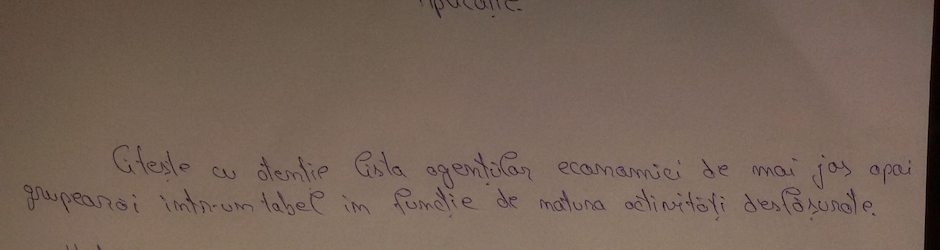 Aplicație.
Citește cu atenție lista agenților economici de mai jos apoi
grupeazăi intr-un tabel in funcție de natura activității desfășurate.